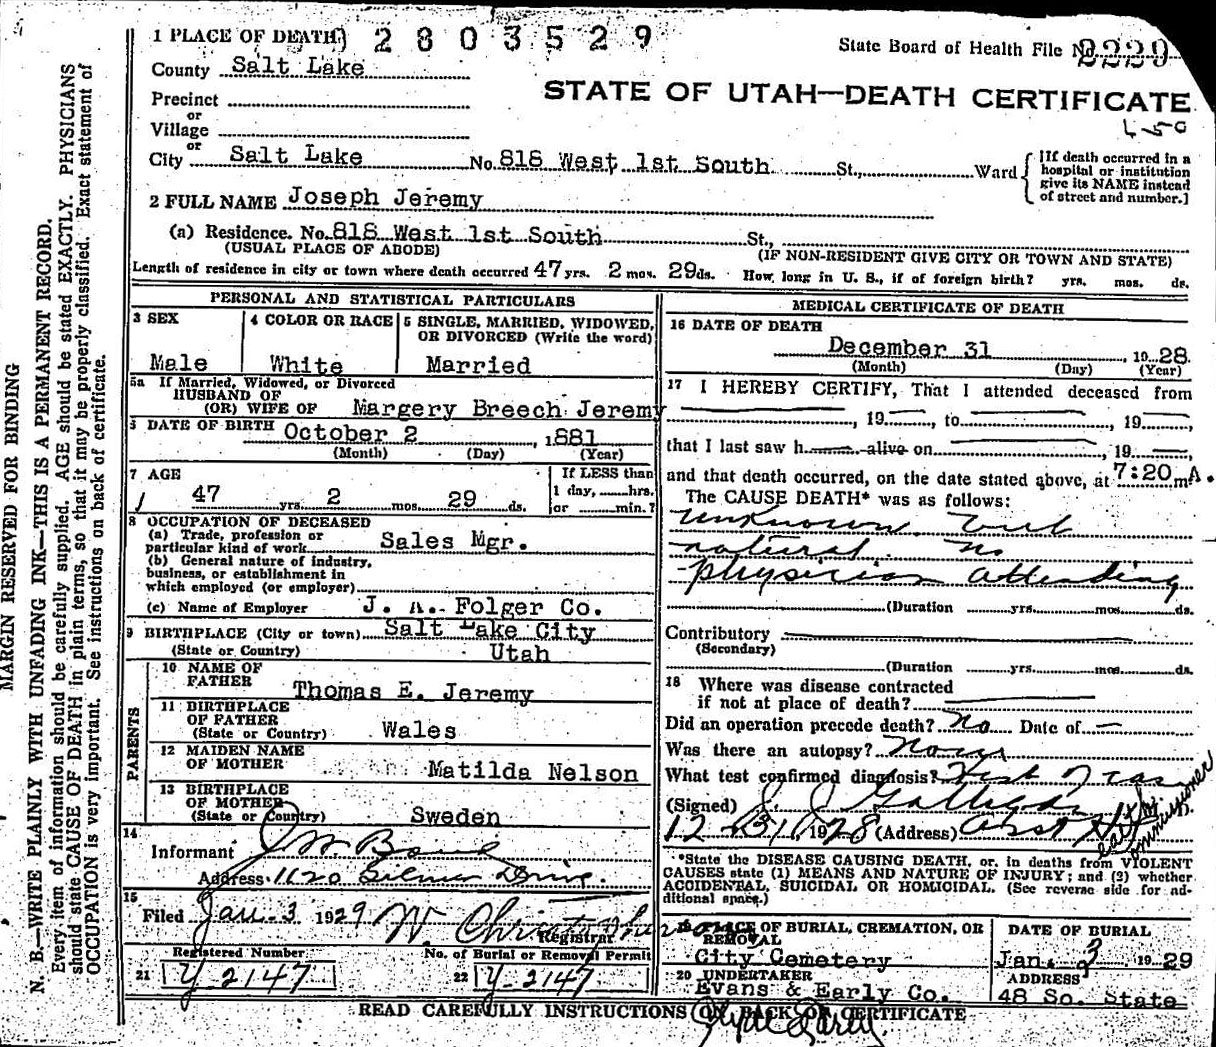 1 PLACE OF DEATH) 2803529
State Board of Health File No. 2229
County Salt Lake
STATE OF UTAH—DEATH CERTIFICATE
Precinct
or
Village
or
City Salt Lake No. 818 West 1st South St., Ward
[If death occurred in a hospital or institution give its NAME instead of street and number.]
2 FULL NAME Joseph Jeremy
(a) Residence. No. 818 West 1st South St.,
(USUAL PLACE OF ABODE) (IF NON-RESIDENT GIVE CITY OR TOWN AND STATE)
Length of residence in city or town where death occurred 47 yrs. 2 mos. 29 ds. How long in U. S., if of foreign birth? yrs. mos. ds.
PERSONAL AND STATISTICAL PARTICULARS
3 SEX
Male
4 COLOR OR RACE
White
5 SINGLE, MARRIED, WIDOWED, OR DIVORCED (Write the word)
Married
5a If Married, Widowed, or Divorced
HUSBAND OF
(OR) WIFE OF Margery Breech Jeremy
6 DATE OF BIRTH October 2, 1881
(Month) (Day) (Year)
7 AGE
47 yrs. 2 mos. 29 ds.
If LESS than
1 day, hrs.
or min.?
8 OCCUPATION OF DECEASED
(a) Trade, profession or
particular kind of work Sales Mgr.
(b) General nature of industry,
business, or establishment in
which employed (or employer)
(c) Name of Employer J. A. Folger Co.
9 BIRTHPLACE (City or town) Salt Lake City
(State or Country) Utah
PARENTS
10 NAME OF
FATHER Thomas E. Jeremy
11 BIRTHPLACE
OF FATHER
(State or Country) Wales
12 MAIDEN NAME
OF MOTHER Matilda Nelson
13 BIRTHPLACE
OF MOTHER
(State or Country) Sweden
14
Informant J W
Address 1120 Gilmer Drive.
15
Filed Jan - 3 1929 W. Christopherson
Registrar
Registered Number
21 Y-2147
No. of Burial or Removal Permit
22 Y-2147
MEDICAL CERTIFICATE OF DEATH
16 DATE OF DEATH
December 31, 1928
(Month) (Day) (Year)
17 I HEREBY CERTIFY, That I attended deceased from
, 19 , to , 19 ,
that I last saw h alive on , 19 ,
and that death occurred, on the date stated above, at 7:20 m A.
The CAUSE DEATH* was as follows:
unknown but
natural. no
physician attending
(Duration yrs. mos. ds.
Contributory
(Secondary)
(Duration yrs. mos. ds.
18 Where was disease contracted
if not at place of death?
Did an operation precede death? No Date of —
Was there an autopsy?
What test confirmed diagnosis?
(Signed) J. J. Galligan
12 - 31 1928 (Address)
*State the DISEASE CAUSING DEATH, or, in deaths from VIOLENT
CAUSES state (1) MEANS AND NATURE OF INJURY; and (2) whether
ACCIDENTAL, SUICIDAL OR HOMICIDAL. (See reverse side for additional space.)
19 PLACE OF BURIAL, CREMATION, OR
REMOVAL
City Cemetery
DATE OF BURIAL
Jan. 3 1929
20 UNDERTAKER
Evans & Early Co.
ADDRESS
48 So. State
READ CAREFULLY INSTRUCTIONS ON BACK OF CERTIFICATE
MARGIN RESERVED FOR BINDING
N. B.—WRITE PLAINLY WITH UNFADING INK—THIS IS A PERMANENT RECORD.
Every item of information should be carefully supplied. AGE should be stated EXACTLY. PHYSICIANS
should state CAUSE OF DEATH in plain terms, so that it may be properly classified. Exact statement of
OCCUPATION is very important. See instructions on back of certificate.